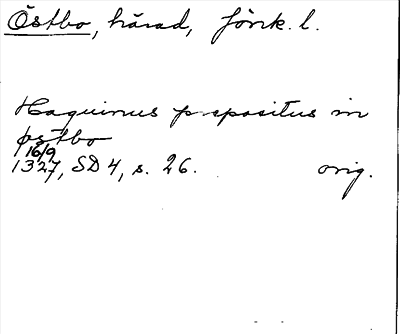 Östbo, härad, Jönk. l.
Haquinus prepositus in
østbo
16/9
1327, SD 4, s. 26. orig.